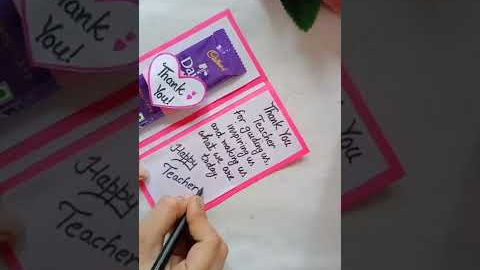 Thank
You!
Cadbury
Dai
Thank You
Teacher
for guiding us,
inspiring us
and making us
what we are
today.
Happy
Teacher